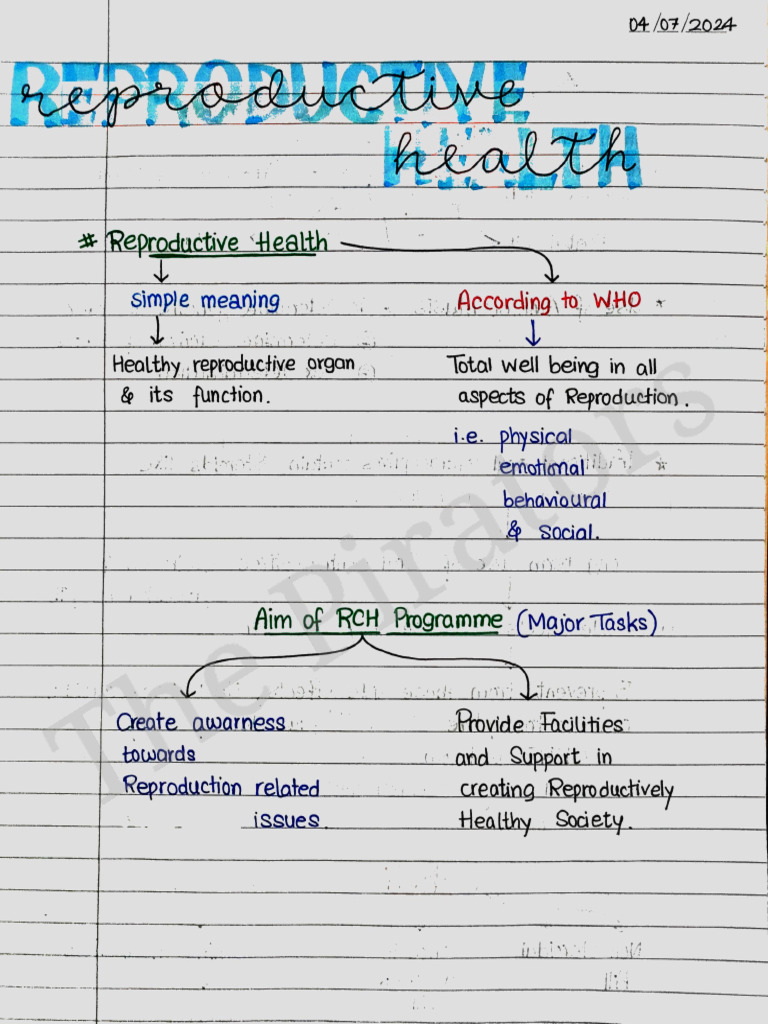 04/07/2024
REPRODUCTIVE
reproductive
HEALTH
health
# Reproductive Health
simple meaning
According to WHO
Healthy reproductive organ
& its function.
Total well being in all
aspects of Reproduction.
i.e. physical
emotional
behavioural
& social.
Aim of RCH Programme (Major Tasks)
Create awarness
towards
Reproduction related
issues.
Provide Facilities
and Support in
creating Reproductively
Healthy Society.
The Pirators